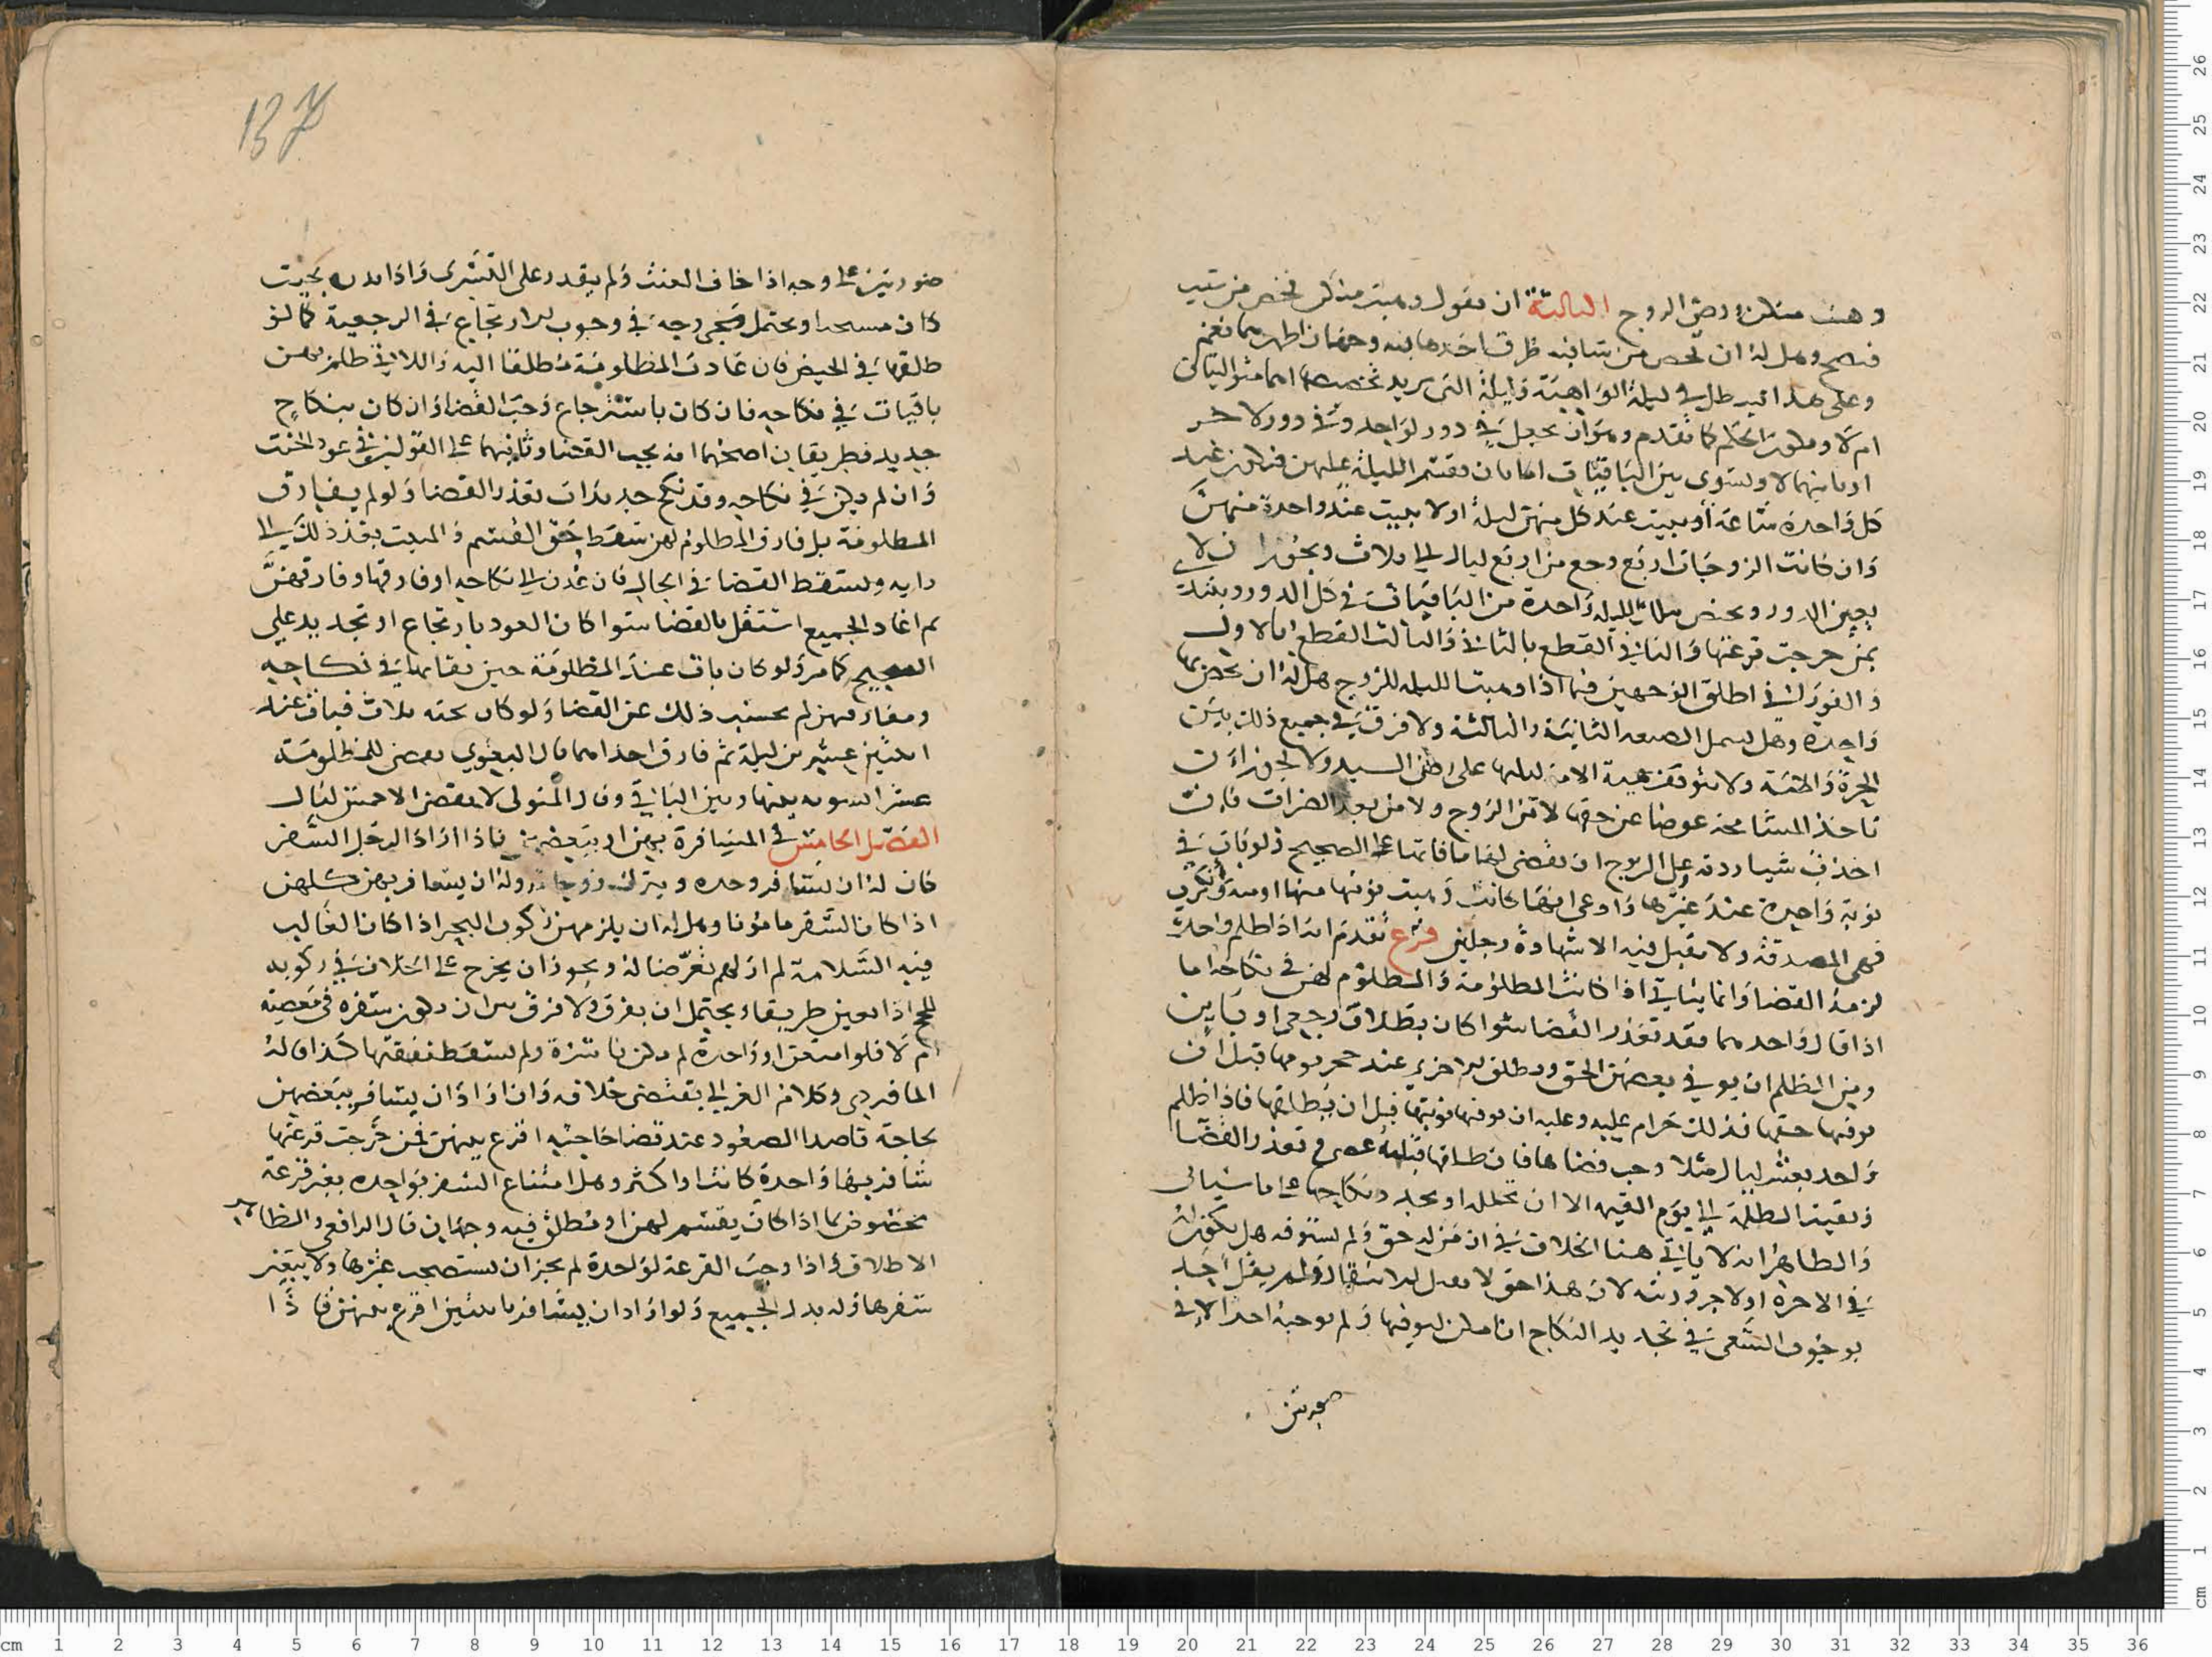 وهبت منك ورضي الزوج الثالثة ان يقول وهبت منك فخص من شيت
فيصح وهل له ان يخص من شا فيه طرق احدها نعم وجهان اظهرهما نعم
وعلى هذا في ليلة الواهبة وليلة التي يريد تخصيصها اما متواليتان
ام لا وطرد الحكم كما تقدم وهو ان يجعل في دور لواحدة وفي دور لاخر
ويسوى بين الباقيات اما بان يقسم الليلة عليهن فيكون عند
كل واحدة ساعة او يبيت عند كل منهن ليلة اولا يبيت عند واحدة منهن
وان كانت الزوجات اربع رجع من اربع ليال الى ثلاث ويجوز ان لا
يغير الدور ويخص بتلك الليلة واحدة من الباقيات في كل الدور ويبتدئ
بمن خرجت قرعتها والثاني القطع بالثاني والثالث القطع بالاول
والفوراني اطلق الوجهين فيما اذا وهبت الليلة للزوج هل له ان يخص بها
واحدة وهل يشمل الصيغة الثانية والثالثة ولا فرق في جميع ذلك بين
الحرة والامة ولا يتوقف هبة الامة ليلتها على اذن السيد ولا يجوز ان
تاخذ المسامحة عوضا عن حقها لا من الزوج ولا من بعد الضرات فان
اخذت شيا ردته وعلى الزوج ان يقضى لها ما فاتها على الصحيح ولو بات في
نوبة واحدة عند غيرها وادعى انها كانت وهبت نوبتها منها او منه وانكرت
فهى المصدقة ولا يقبل فيه الا شهادة رجلين فرع تقدم انه اذا ظلم واحدة
لزمه القضا وانما يتاتي اذا كانت المظلومة والمظلوم لهن في نكاحه اما
اذا فارق واحدة فقد تعذر القضا سوا كان بطلاق رجعي او باين
ومن الظلم ان يوفي بعضهن الحق ويطلق الاخرى عند حضر يومها قبل ان
يوفيها حقها فذلك حرام عليه وعليه ان يوفيها نوبتها قبل ان يطلقها فاذا ظلم
واحدة بعشر ليال مثلا وجب قضاها فان طلقها قبله عصى وتعذر القضا
وبقيت الظلمة الى يوم القيمة الا ان تحلله او يجدد نكاحها على ما سياتى
والظاهر انه لا ياتي هنا الخلاف في ان من له حق ولم يستوفه هل يكون له
في الاخرة او لاخر ورثته لان هذا حق لا يقبل الانتقال ولم يقل احد
بوجوب السعي في تجديد النكاح ان امكن ليوفيها ولم يوجبه احد الا في
صورتين
137
صورتين على وجه اذا خاف العنت ولم يقدر على التسرى واذا
كان مستحبا ويحتمل مجى وجه في وجوب الارتجاع في الرجعية كما لو
طلقها في الحيض فان عادت المظلومة مطلقا اليه واللاتي ظلم بهن
باقيات في نكاحه فان كان باسترجاع وجب القضا وان كان بنكاح
جديد فطريقان اصحهما انه يجب القضا وثانيهما على القولين في عود الحنث
وان لم يكن في نكاحه وقد نكح جديدات تعذر القضا ولو لم يفارق
المظلومة بل فارق المظلوم لهن سقط حق القسم والمبيت بقدر ذلك الى
رايه ويسقط القضا في الحال فان عدن الى نكاحه او فارقها وفارقهن
ثم اعاد الجميع اشتغل بالقضا سوا كان العود بارتجاع او تجديد على
الصحيح كما مر ولو كان بات عند المظلومة حين بقايها في نكاحه
ومفارقتهن لم يحسب ذلك عن القضا ولو كان تحته ثلاث فبات عند
اثنتين عشرين ليلة ثم فارق احداهما قال البغوي يقضى للمظلومة
عشرا بالسوية بينها وبين الباقية وقال المتولى لا يقضى الا خمس ليال
الفصل الخامس في المسافرة بهن او ببعضهن فاذا اراد الرجل السفر
كان له ان يسافر وحده ويترك زوجاته وله ان يسافر بهن كلهن
اذا كان السفر مامونا وهل له ان يلزمهن ركوب البحر اذا كان الغالب
فيه السلامة لم ار لهم تعرضا له ويجوز ان يخرج على الخلاف في ركوبه
للحج اذا تعين طريقا ويحتمل ان يفرق ولا فرق بين ان يكون سفره في معصية
ام لا فلو امتنعن او واحدة لم يكن ناشزة ولم تسقط نفقتها كذا قاله
الماوردي وكلام الغزالي يقتضى خلافه وان اراد ان يسافر ببعضهن
لحاجة قاصدا الصعود عند قضا حاجته اقرع بينهن فمن خرجت قرعتها
سافر بها واحدة كانت او اكثر وهل امتناع السفر بواحدة بغير قرعة
مخصوص بما اذا كان يقسم لهن او مطلق فيه وجهان قال الرافعي والظاهر
الاطلاق واذا وجبت القرعة لواحدة لم يجز ان يستصحب غيرها ولا يتعين
سفرها وله بدل الجميع ولو اراد ان يسافر باثنتين اقرع بينهن فاذا